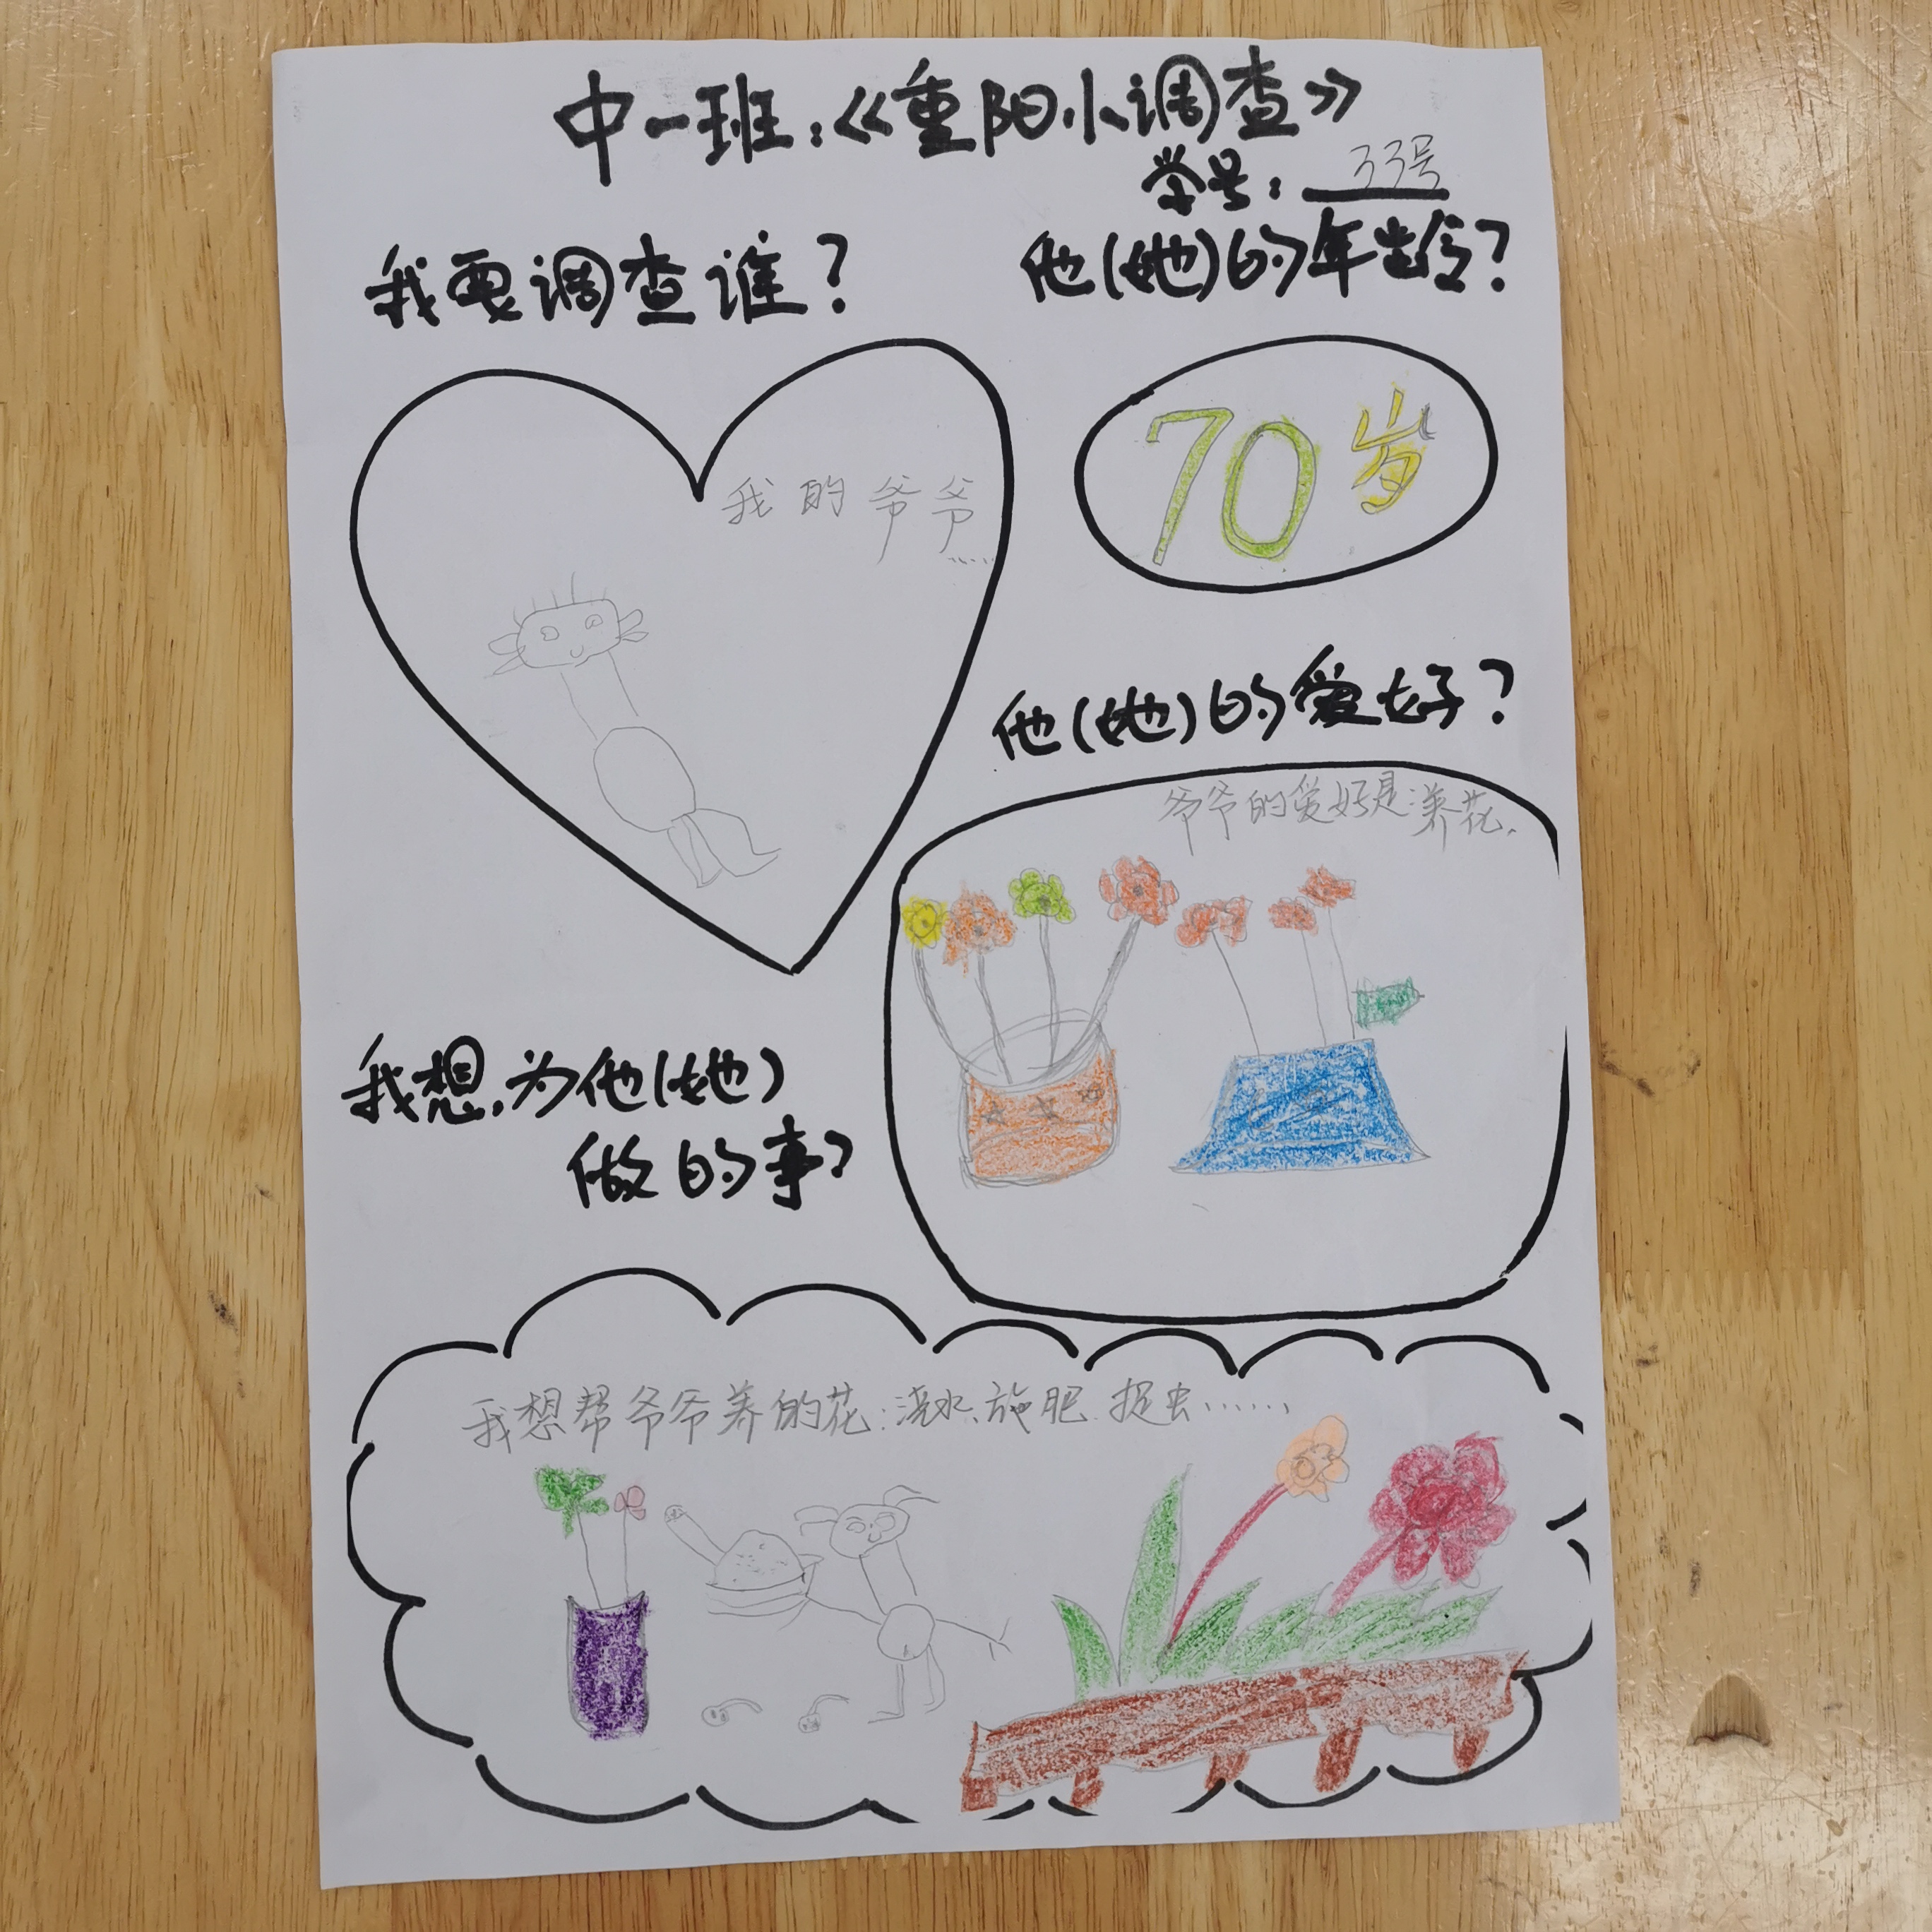 中一班:《重阳小调查》
学号: 33号
我要调查谁?
他(她)的年龄?
我的爷爷......
70岁
他(她)的爱好?
爷爷的爱好是养花.
我想,为他(她)
做的事?
我想帮爷爷养的花:浇水、施肥、捉虫......